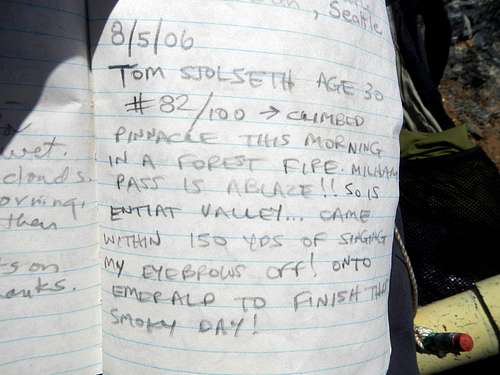 , Seattle
8/5/06
TOM SJOLSETH AGE 30
#82/100 → CLIMBED
PINNACLE THIS MORNING
IN A FOREST FIRE. MILHAM
PASS IS ABLAZE!! SO IS
ENTIAT VALLEY... CAME
WITHIN 150 YDS OF SINGING
MY EYEBROWS OFF! ONTO
EMERALD TO FINISH THIS
SMOKY DAY!
wet.
clouds.
then
on